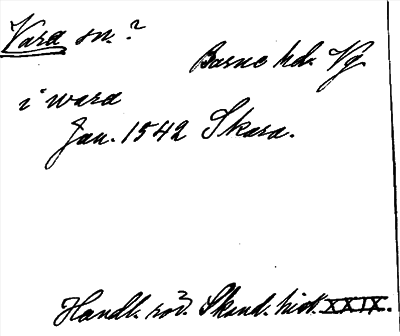 Vara sn.?
Barne hd. Vg
i wara
Jan. 1542 Skara.
Handl. rör. Skand. hist. XXIX.